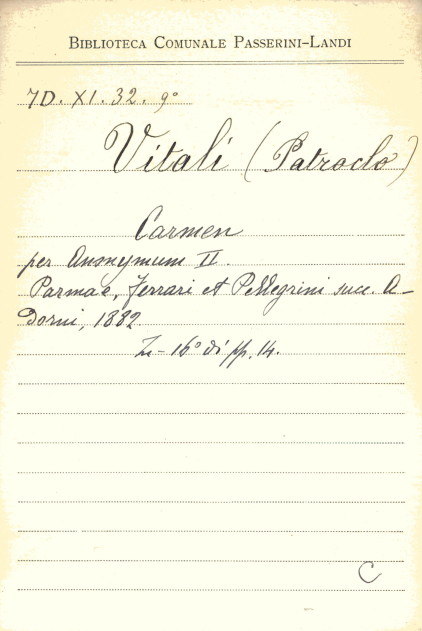 BIBLIOTECA COMUNALE PASSERINI-LANDI
7D. XI. 32. 9°
Vitali (Patroclo)
Carmen
per Anonymum II.
Parmae, Ferrari et Pellegrini succ. A-
dorni, 1882
16° di pp. 14.
C